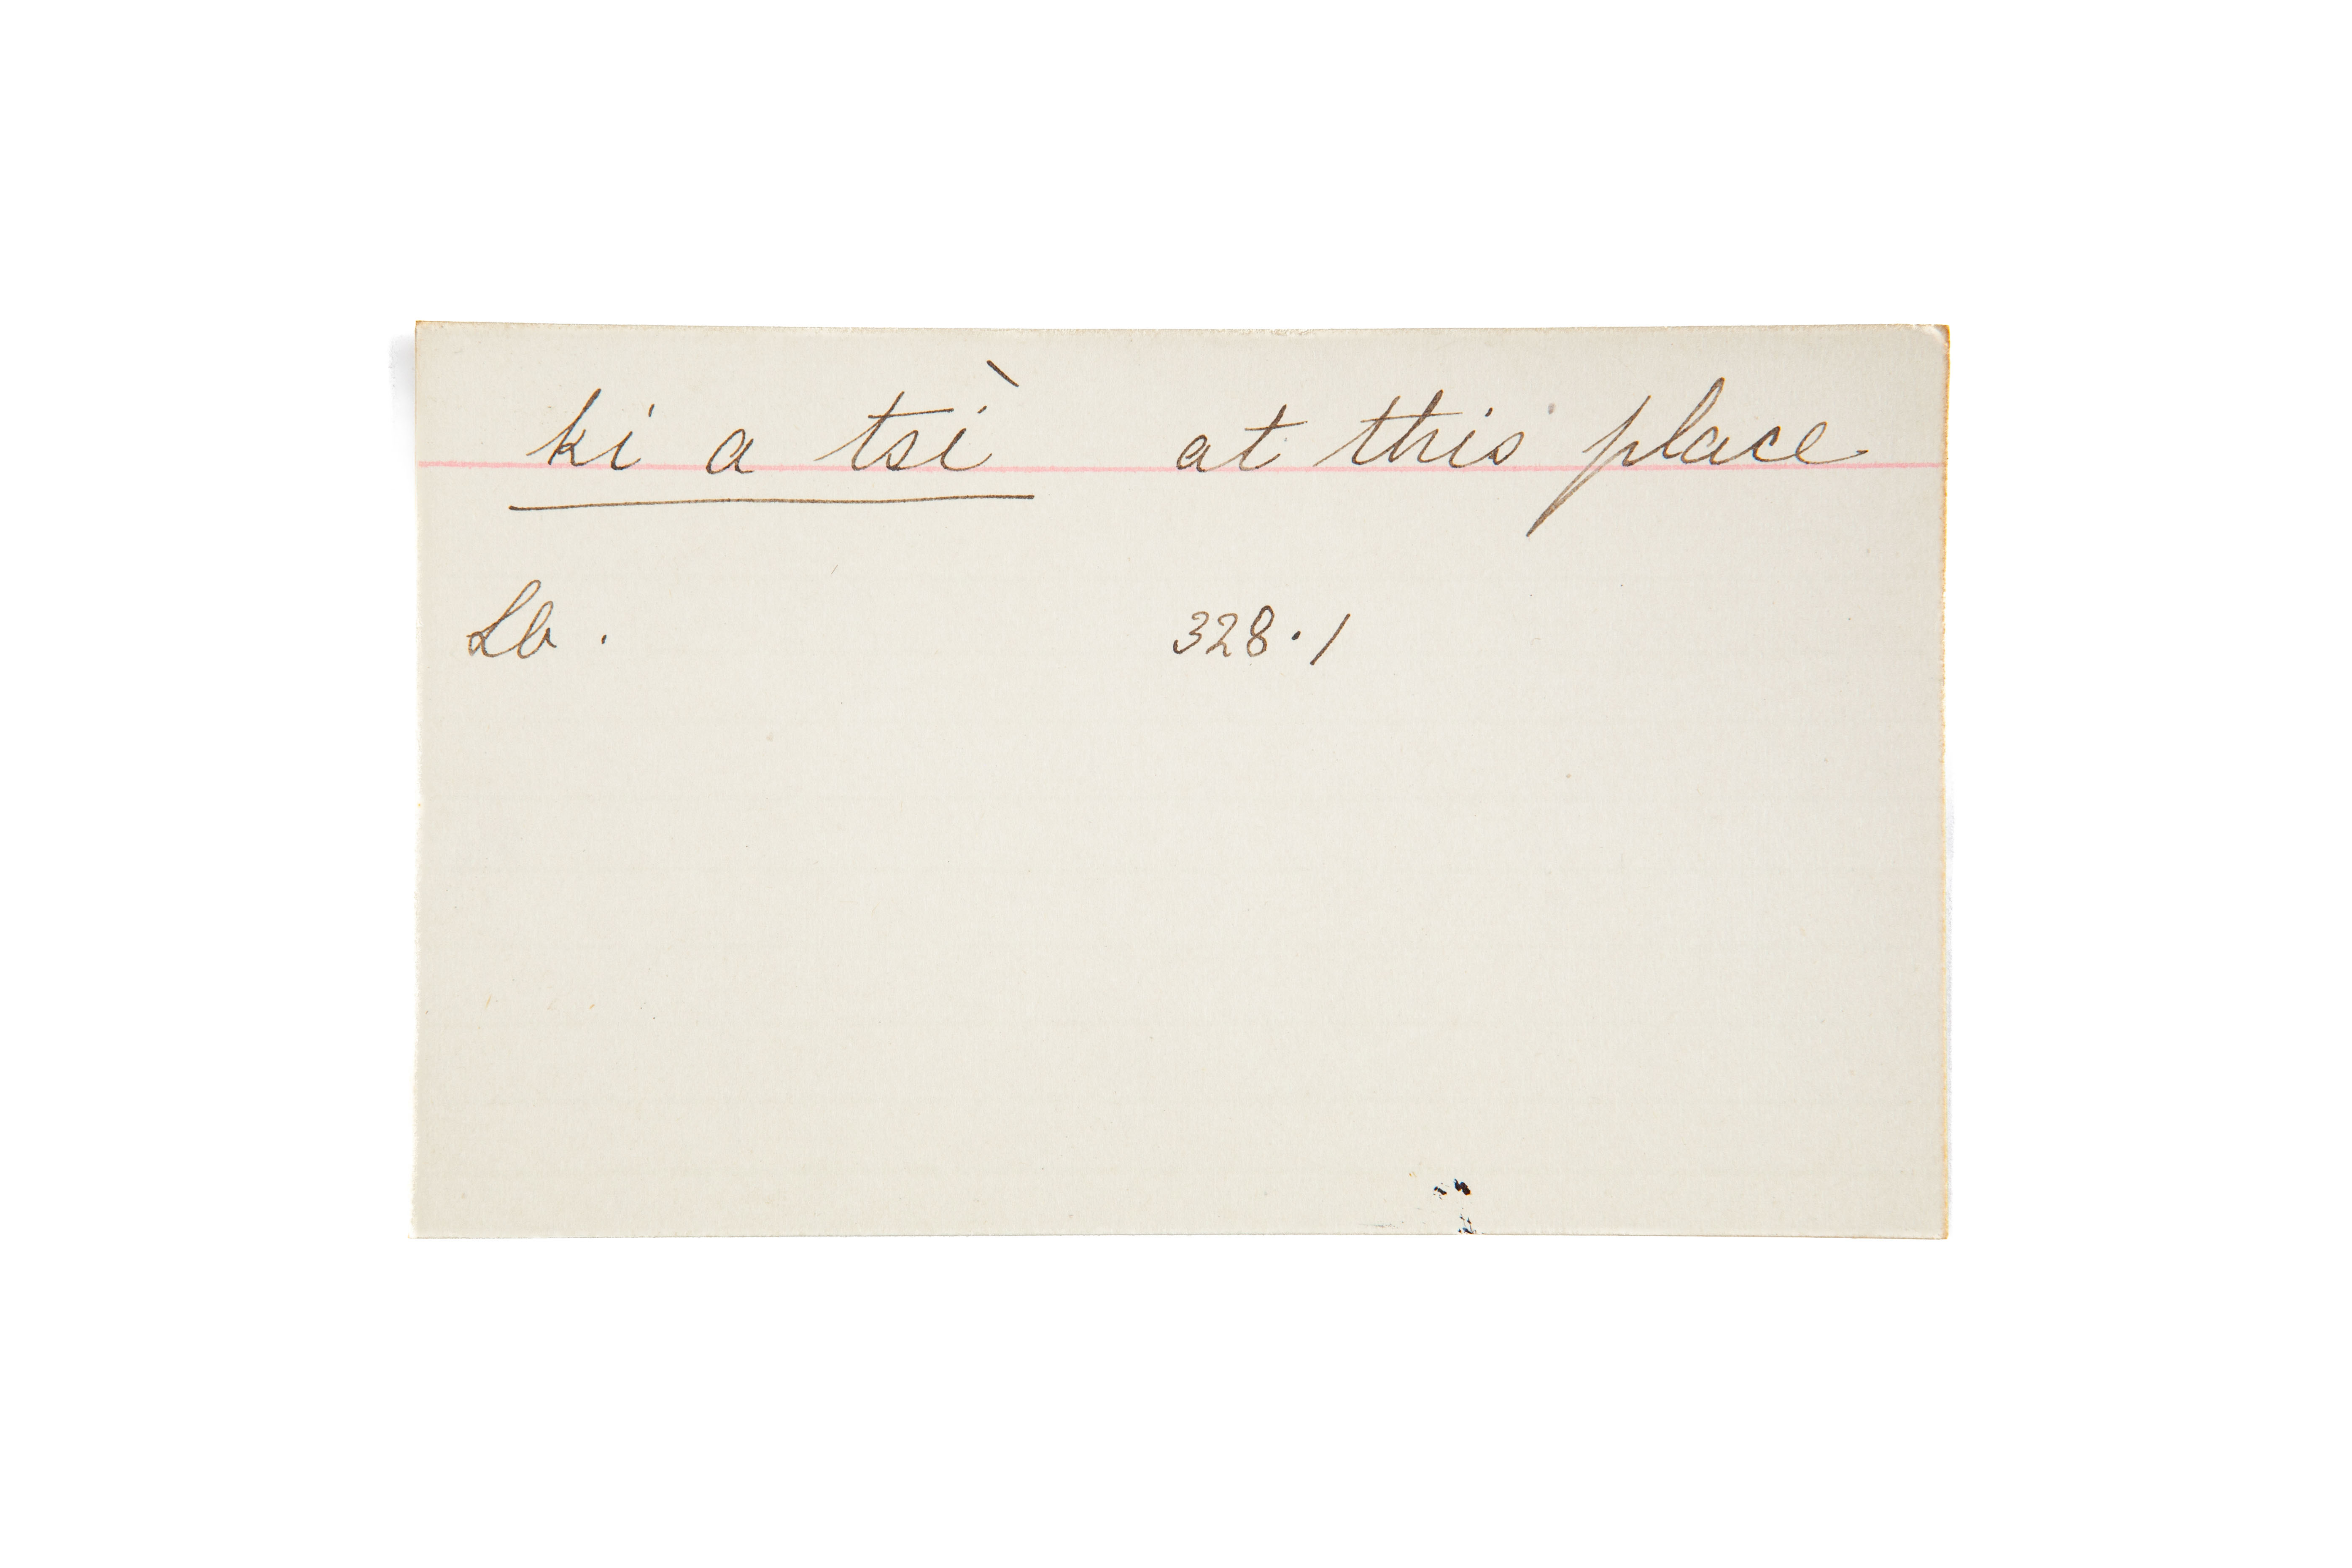 ki a tsi ̀ at this place
Lb . 328.1